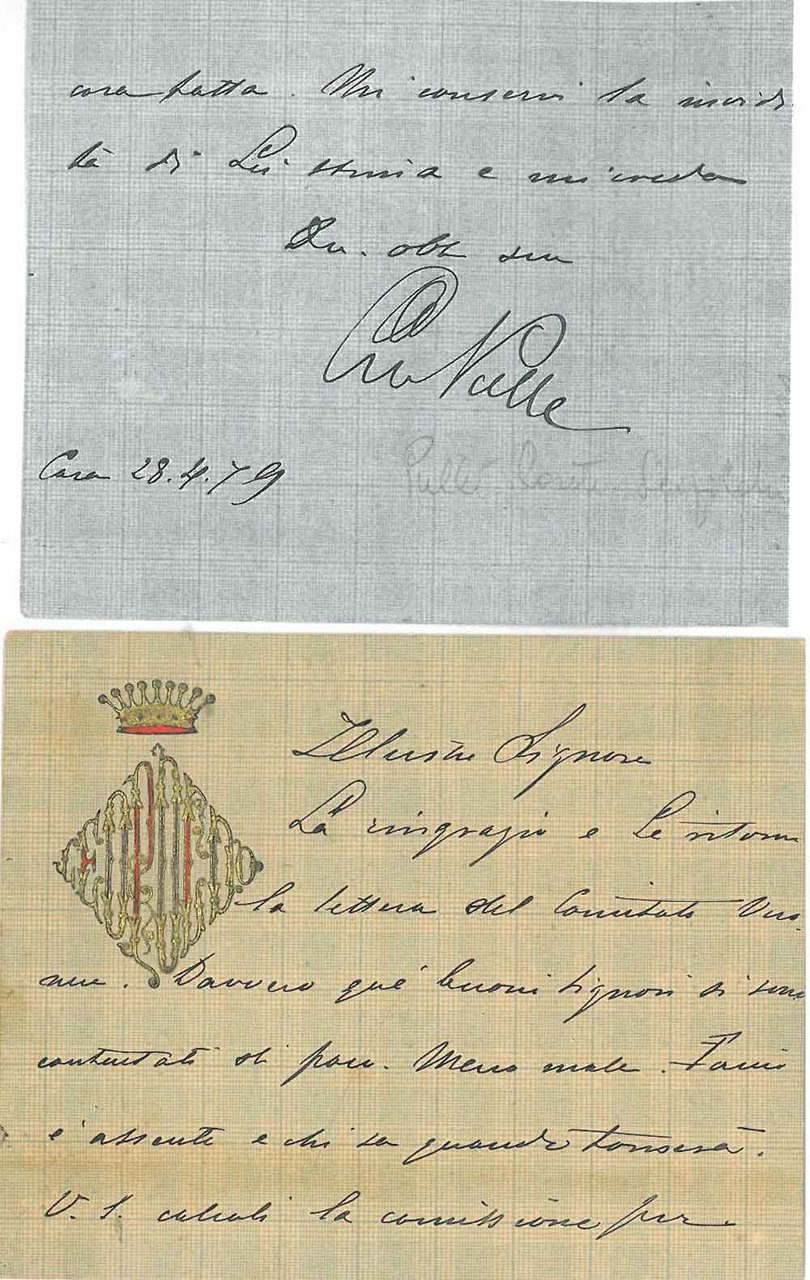 cosa fatta. Mi conservi la
tà di Lei stima e mi creda
Cara 28.4.79
Pullè Conte
Illustre Signore
La ringrazio e Le ritorno
la lettera del Comitato Vero-
nese. Davvero que' buoni signori si sono
contentati di poco. Meno male.
è assente e chi sa quando tornerà.
V. S. calcoli la comissione per